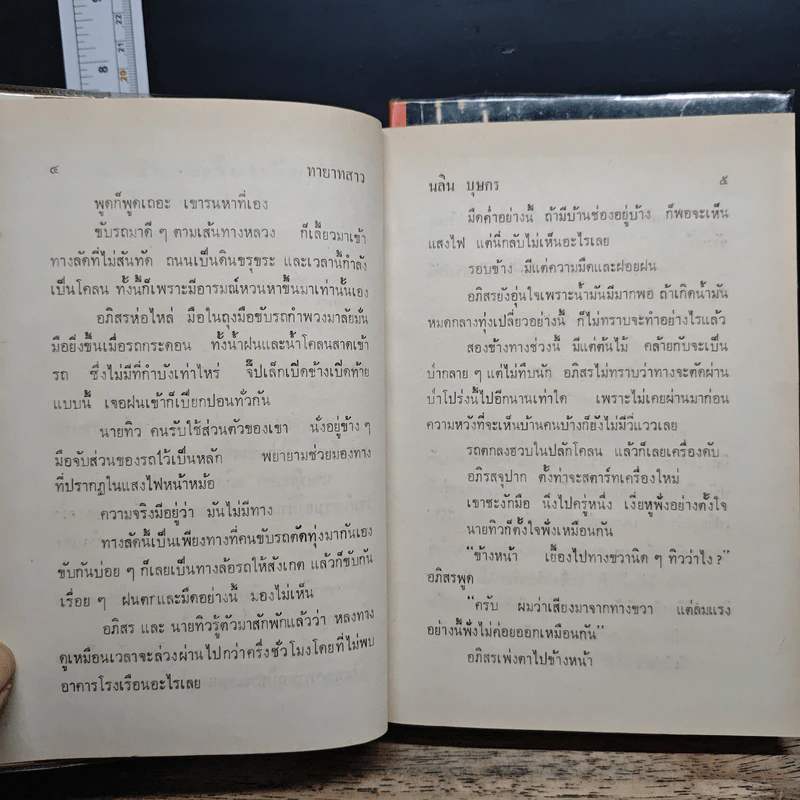 ๔ ทายาทสาว
พูดก็พูดเถอะ เขารนหาที่เอง
ขับรถมาดี ๆ ตามเส้นทางหลวง ก็เลี้ยวมาเข้า
ทางลัดที่ไม่สันทัด ถนนเป็นดินขรุขระ และเวลานี้กำลัง
เป็นโคลน ทั้งนี้ก็เพราะมีอารมณ์หวนหาขึ้นมาเท่านั้นเอง
อภิสรห่อไหล่ มือในถุงมือขับรถกำพวงมาลัยมั่น
มือยิ่งขึ้นเมื่อรถกระดอน ทั้งน้ำฝนและน้ำโคลนสาดเข้า
รถ ซึ่งไม่มีที่กำบังเท่าไหร่ จี๊ปเล็กเปิดข้างเปิดท้าย
แบบนี้ เจอฝนเข้าก็เปียกปอนทั่วกัน
นายทิว คนรับใช้ส่วนตัวของเขา นั่งอยู่ข้าง ๆ
มือจับส่วนของรถไว้เป็นหลัก พยายามช่วยมองทาง
ที่ปรากฏในแสงไฟหน้าหม้อ
ความจริงมีอยู่ว่า มันไม่มีทาง
ทางลัดนี้เป็นเพียงทางที่คนขับรถตัดทุ่งมากันเอง
ขับกันบ่อย ๆ ก็เลยเป็นทางล้อรถให้สังเกต แล้วก็ขับกัน
เรื่อย ๆ ฝนตกและมืดอย่างนี้ มองไม่เห็น
อภิสร และ นายทิวรู้ตัวมาสักพักแล้วว่า หลงทาง
ดูเหมือนเวลาจะล่วงผ่านไปกว่าครึ่งชั่วโมงโดยที่ไม่พบ
อาคารโรงเรือนอะไรเลย
นลิน บุษกร ๕
มืดค่ำอย่างนี้ ถ้ามีบ้านช่องอยู่บ้าง ก็พอจะเห็น
แสงไฟ แต่นี่กลับไม่เห็นอะไรเลย
รอบข้าง มีแต่ความมืดและฝอยฝน
อภิสรยังอุ่นใจเพราะน้ำมันมีมากพอ ถ้าเกิดน้ำมัน
หมดกลางทุ่งเปลี่ยวอย่างนี้ ก็ไม่ทราบจะทำอย่างไรแล้ว
สองข้างทางช่วงนี้ มีแต่ต้นไม้ คล้ายกับจะเป็น
ป่ากลาย ๆ แต่ไม่ทึบนัก อภิสรไม่ทราบว่าทางจะตัดผ่าน
ป่าโปร่งนี้ไปอีกนานเท่าใด เพราะไม่เคยผ่านมาก่อน
ความหวังที่จะเห็นบ้านคนบ้างก็ยังไม่มีวี่แววเลย
รถตกลงฮวบในปลักโคลน แล้วก็เลยเครื่องดับ
อภิรสจุปาก ตั้งท่าจะสตาร์ทเครื่องใหม่
เขาชะงักมือ นึ่งไปครู่หนึ่ง เงี่ยหูฟังอย่างตั้งใจ
นายทิวก็ตั้งใจฟังเหมือนกัน
“ข้างหน้า เยื้องไปทางขวานิด ๆ ทิวว่าไง ?”
อภิสรพูด
“ครับ ผมว่าเสียงมาจากทางขวา แต่ลมแรง
อย่างนี้ฟังไม่ค่อยออกเหมือนกัน”
อภิสรเพ่งตาไปข้างหน้า